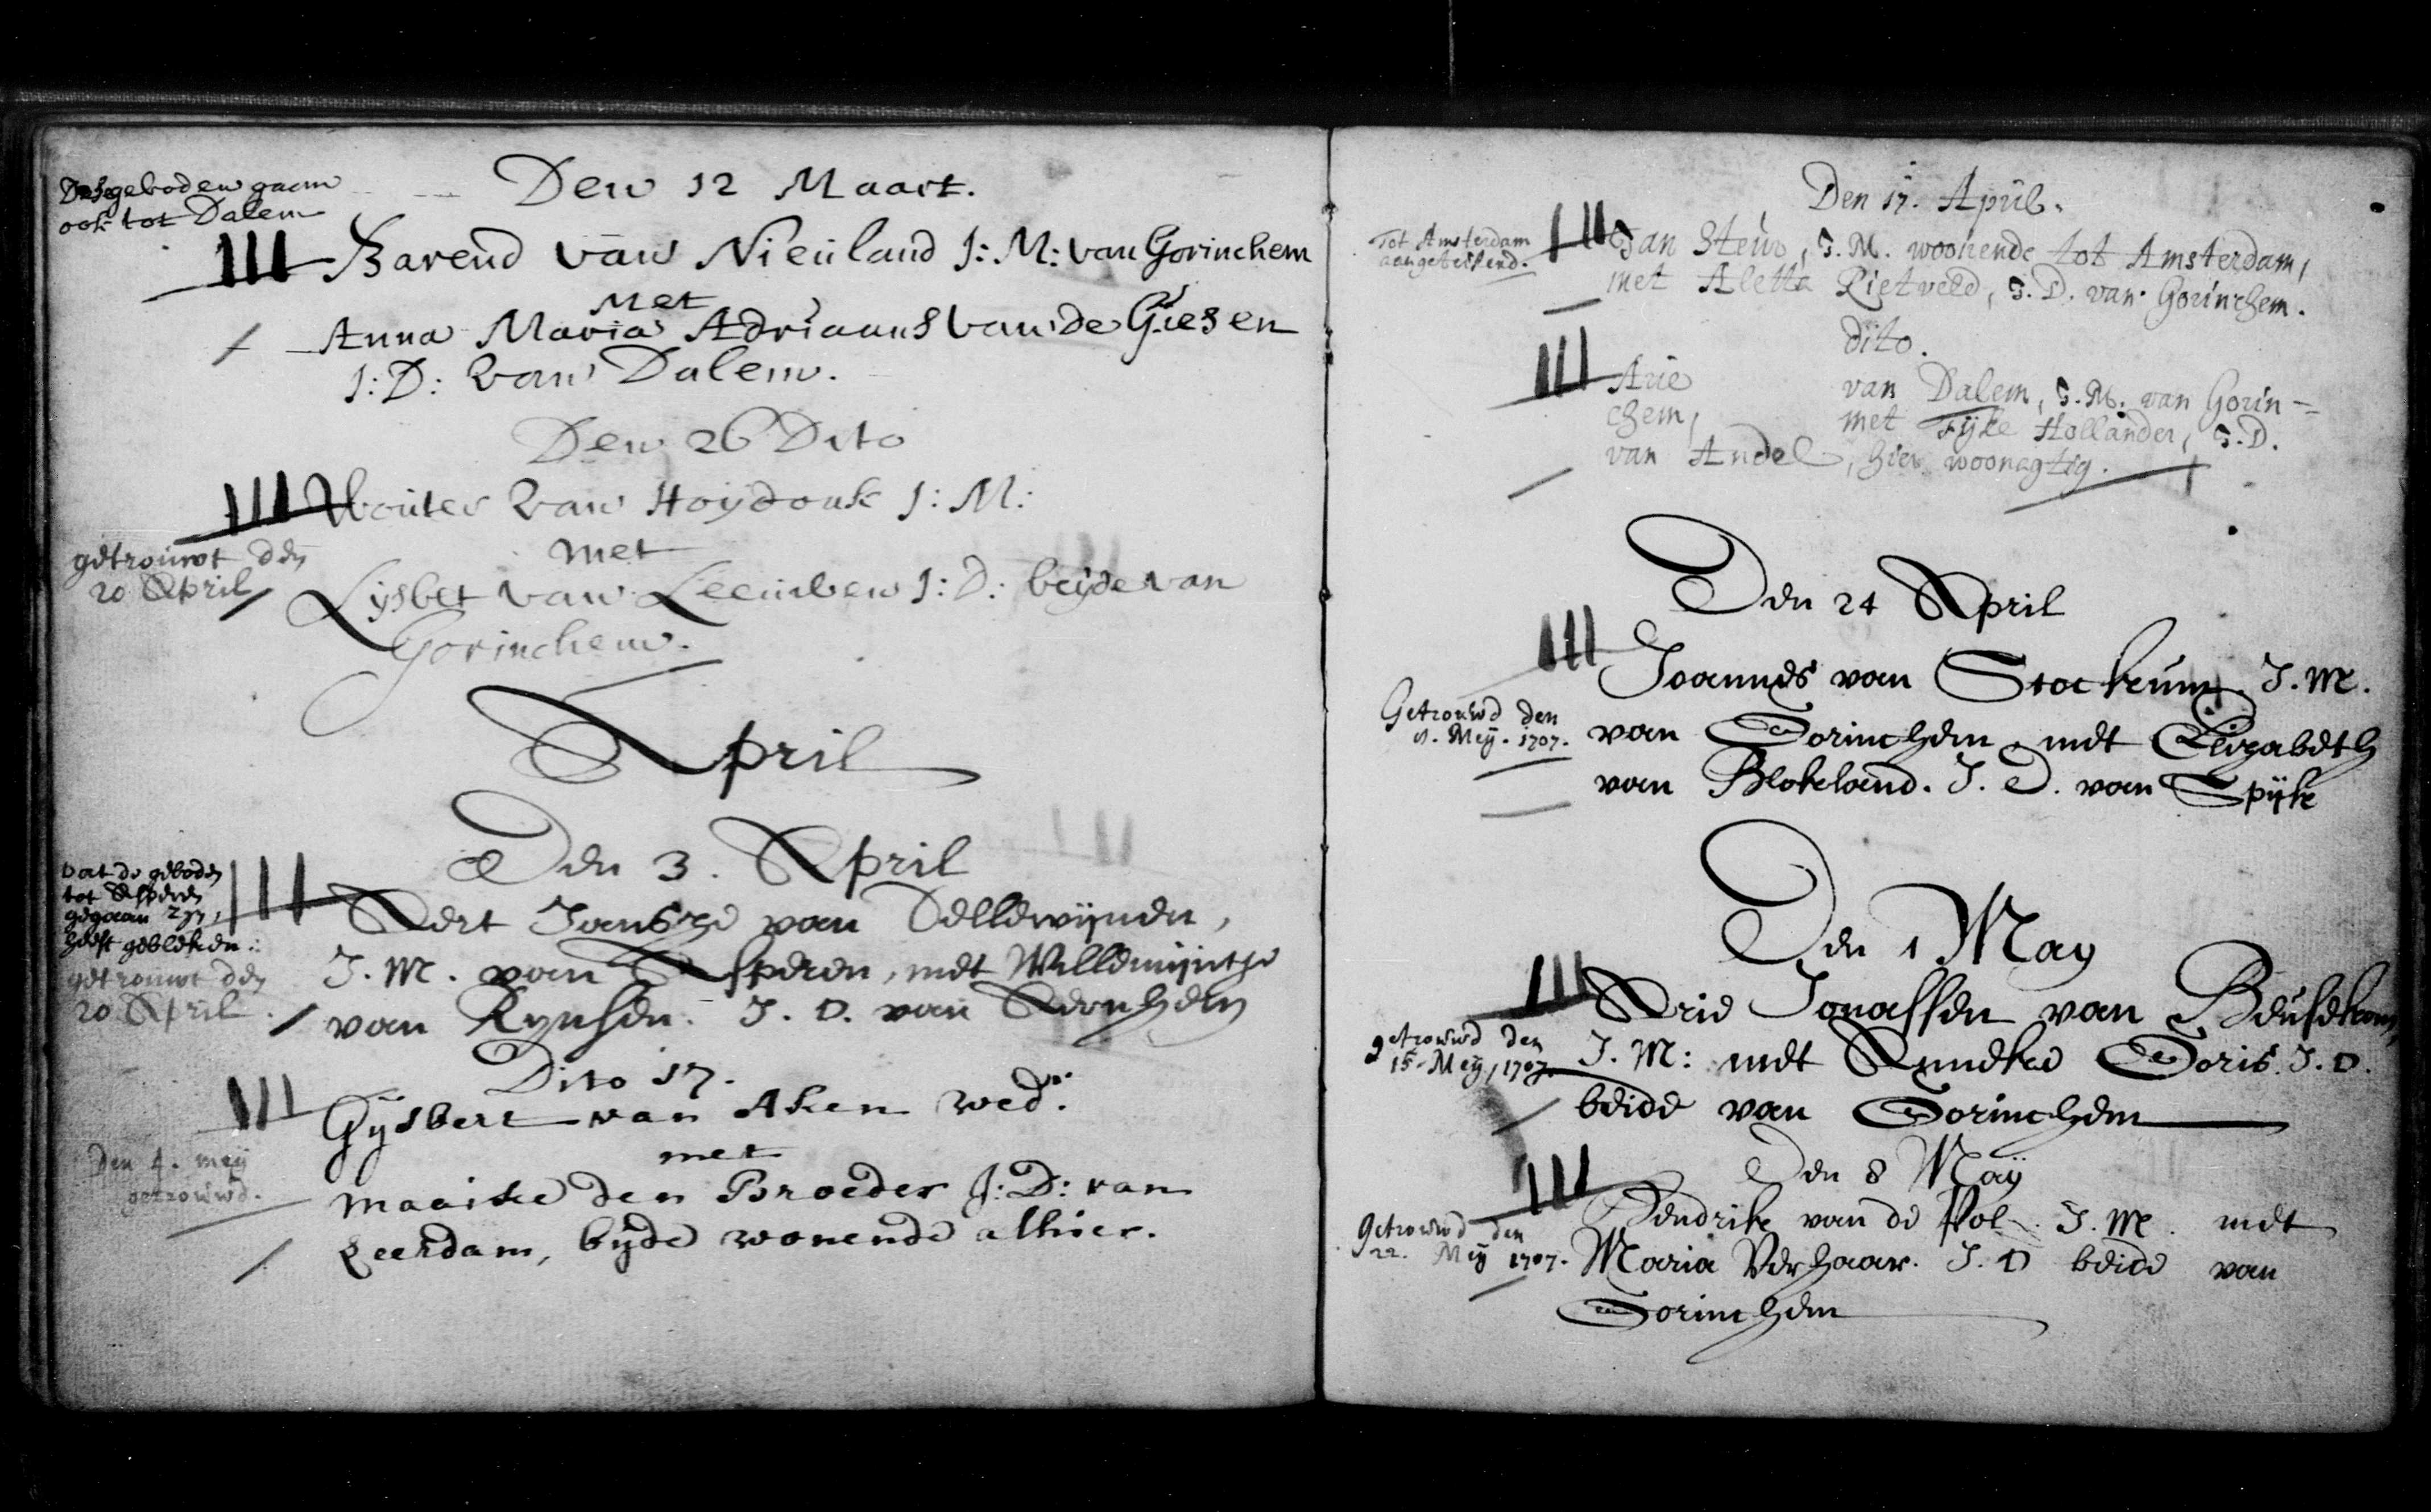 Den 12 Maart.
Dese geboden gaan
ook tot Dalem
Barend van Nieuland J: M: van Gorinchem
Met
Anna Maria Adriaans van de Giesen
J: D: van Dalem.
Den 26 Dito
Wouter van Hoÿdonk J: M:
met
getrouwt den
20 April
Lijsbet van Leeuwen J: D: beyde van
Gorinchem.
April
Den 3. April
dat de geboden
tot Asperen
gegaan zyn,
heeft gebleken.
getrouwt den
20 April.
Aert Jansze van Tellewijnen,
J. M. van Asperen, met Willemijntje
van Rynsen. J. D. van Arnhem
Dito 17.
Gijsbert van Aken wed.r
met
Den 4. meij
getrouwd.
Maaike den Broeder J: D: van
Leerdam, byde wonende alhier.
Den 17. April.
Tot Amsterdam
aangetekend.
Jan Steur, J. M. woonende tot Amsterdam,
met Aletta Rietveld, J. D. van Gorinchem.
dito.
Arie van Dalem, J. M. van Gorin-
chem, met Fijke Hollander, J. D.
van Andel, hier woonagtig.
Den 24 April
Joannes van Stockum J. M.
Getrouwd den
8. Meij. 1707.
van Gorinchem, met Elizabeth
van Blokeland. J. D. van Spijk
Den 1 May
Arie Jonassen van Beusekom,
getrouwd den
15 Meij, 1707.
J. M: met Anneke Goris. J. D.
beide van Gorinchem
Den 8 Maÿ
Hendrik van de Pol. J. M. met
Getrouwd den
22. Meij 1707.
Maria Verhaar. J. D beide van
Gorinchem